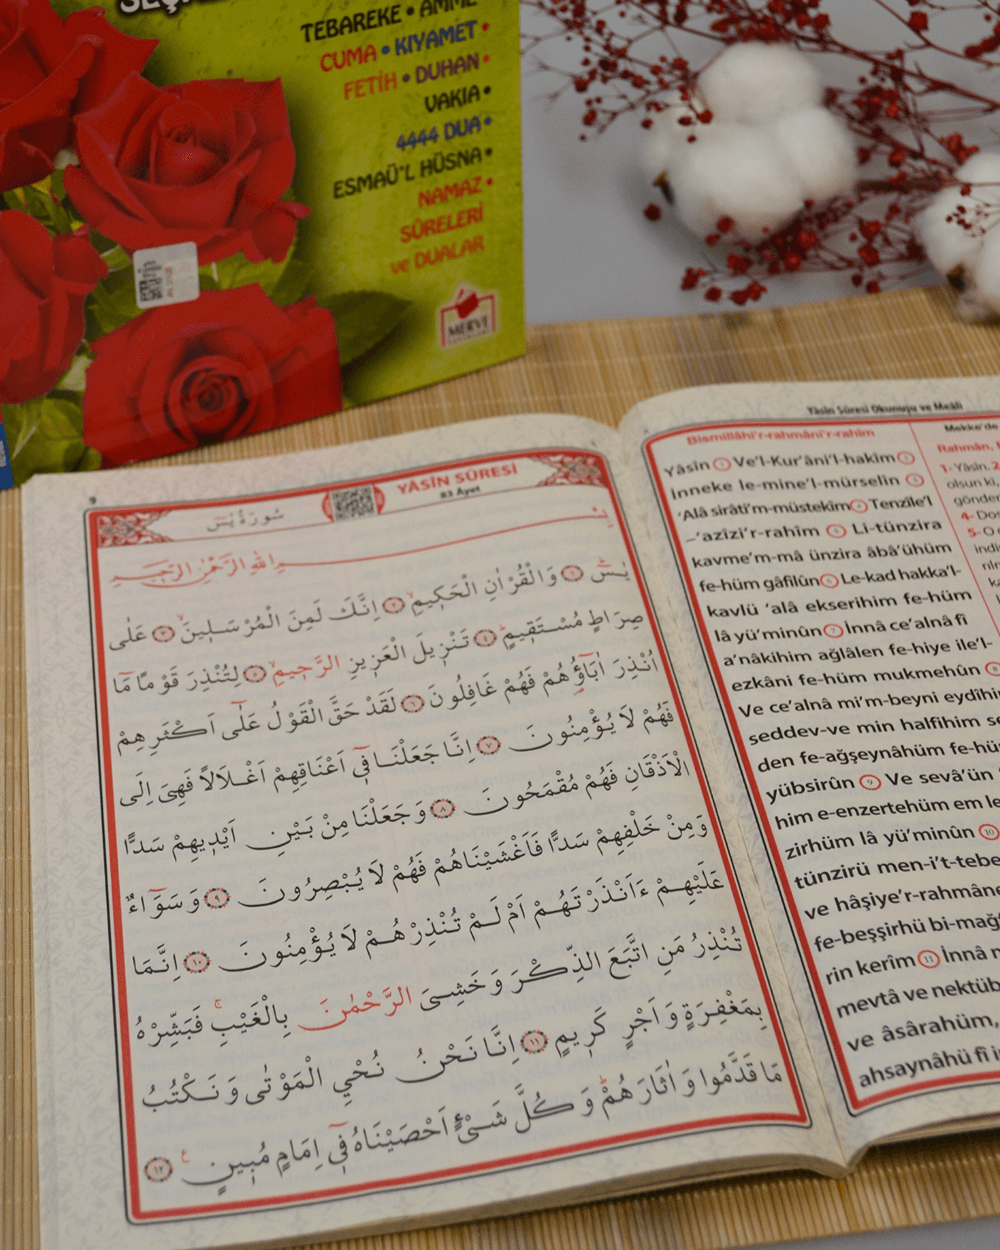 TEBAREKE • AMME
CUMA • KIYAMET •
FETİH • DUHAN •
VAKIA •
4444 DUA •
ESMAÜ'L HÜSNA •
NAMAZ •
SÛRELERİ
ve DUALAR
MERVE
9
سُورَةُ يٰسٓ
YÂSÎN SÛRESİ
83 Âyet
اللهِ الرَّحْمٰنِ الرَّحِيمِ
يٰسٓ ١ وَالْقُرْاٰنِ الْحَكِيمِ ٢ اِنَّكَ لَمِنَ الْمُرْسَلِينَ ٣ عَلٰى
صِرَاطٍ مُسْتَقِيمٍ ٤ تَنْزِيلَ الْعَزِيزِ الرَّحِيمِ ٥ لِتُنْذِرَ قَوْمًا مَا
اُنْذِرَ اٰبَاؤُهُمْ فَهُمْ غَافِلُونَ ٦ لَقَدْ حَقَّ الْقَوْلُ عَلٰى اَكْثَرِهِمْ
فَهُمْ لَا يُؤْمِنُونَ ٧ اِنَّا جَعَلْنَا فِي اَعْنَاقِهِمْ اَغْلَالًا فَهِيَ اِلَى
الْاَذْقَانِ فَهُمْ مُقْمَحُونَ ٨ وَجَعَلْنَا مِنْ بَيْنِ اَيْدِيهِمْ سَدًّا
وَمِنْ خَلْفِهِمْ سَدًّا فَاَغْشَيْنَاهُمْ فَهُمْ لَا يُبْصِرُونَ ٩ وَسَوَاءٌ
عَلَيْهِمْ ءَاَنْذَرْتَهُمْ اَمْ لَمْ تُنْذِرْهُمْ لَا يُؤْمِنُونَ ١٠ اِنَّمَا
تُنْذِرُ مَنِ اتَّبَعَ الذِّكْرَ وَخَشِيَ الرَّحْمٰنَ بِالْغَيْبِ فَبَشِّرْهُ
بِمَغْفِرَةٍ وَاَجْرٍ كَرِيمٍ ١١ اِنَّا نَحْنُ نُحْيِ الْمَوْتٰى وَنَكْتُبُ
مَا قَدَّمُوا وَاٰثَارَهُمْ وَكُلَّ شَيْءٍ اَحْصَيْنَاهُ فِي اِمَامٍ مُبِينٍ ١٢
Yâsîn Sûresi Okunuşu ve Meâli
Bismillâhi'r-rahmâni'r-rahîm
Yâsîn 1 Ve'l-Kur'âni'l-hakîm 2
İnneke le-mine'l-mürselîn 3
'Alâ sırâti'm-müstekîm 4 Tenzîle'l
-'azîzi'r-rahîm 5 Li-tünzira
kavme'm-mâ ünzira âbâ'ühüm
fe-hüm gâfilûn 6 Le-kad hakka'l-
kavlü 'alâ ekserihim fe-hüm
lâ yü'minûn 7 İnnâ ce'alnâ fî
a'nâkihim ağlâlen fe-hiye ile'l-
ezkâni fe-hüm mukmehûn 8
Ve ce'alnâ mi'm-beyni eydîhi
seddev-ve min halfihim se
den fe-ağşeynâhüm fe-hü
yübsirûn 9 Ve sevâ'ün
him e-enzertehüm em le
zirhüm lâ yü'minûn 10
tünzirü men-i't-tebe
ve hâşiye'r-rahmâne
fe-beşşirhü bi-mağ
rin kerîm 11 İnnâ n
mevtâ ve nektüb
ve âsârahüm,
ahsaynâhü fî i
Mekke'de
Rahmân,
1- Yâsîn. 2
olsun ki,
gönder
4- Dos
5- O
indi